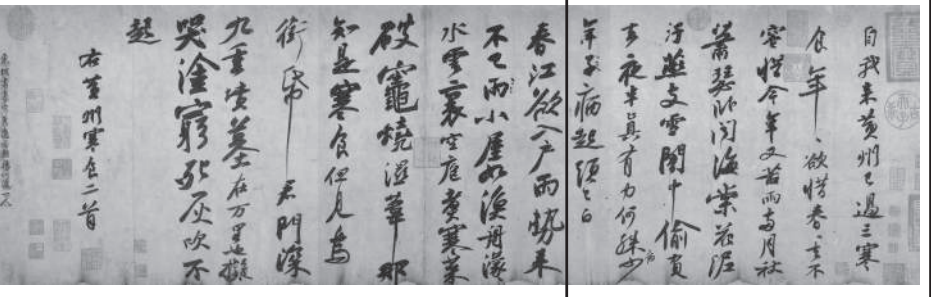 自我来黄州已過三寒
食年、欲惜春、去不
容惜今年又苦雨兩月秋
蕭瑟卧聞海棠花泥
汙燕支雪闇中偷負
去夜半真有力何殊少
年子病起須已白
春江欲入户雨勢来
不已雨小屋如漁舟濛
水雲裏空庖煮寒菜
破竈燒濕葦那
知是寒食但見烏
銜帋君門深
九重墳墓在万里也擬
哭塗窮死灰吹不
起
右黄州寒食二首